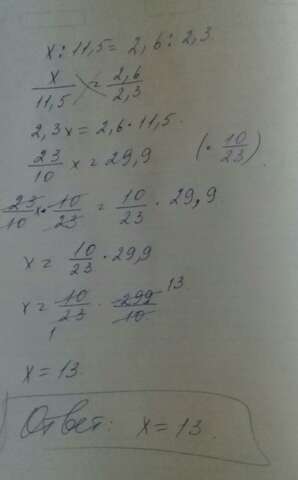 x : 11,5 = 2,6 : 2,3
x/11,5 = 2,6/2,3
2,3x = 2,6 · 11,5.
23/10 x = 29,9 (· 10/23)
23/10 x · 10/23 = 10/23 · 29,9
x = 10/23 · 29,9
x = 10/23 · 299/10 13
1
x = 13.
Ответ: x = 13.